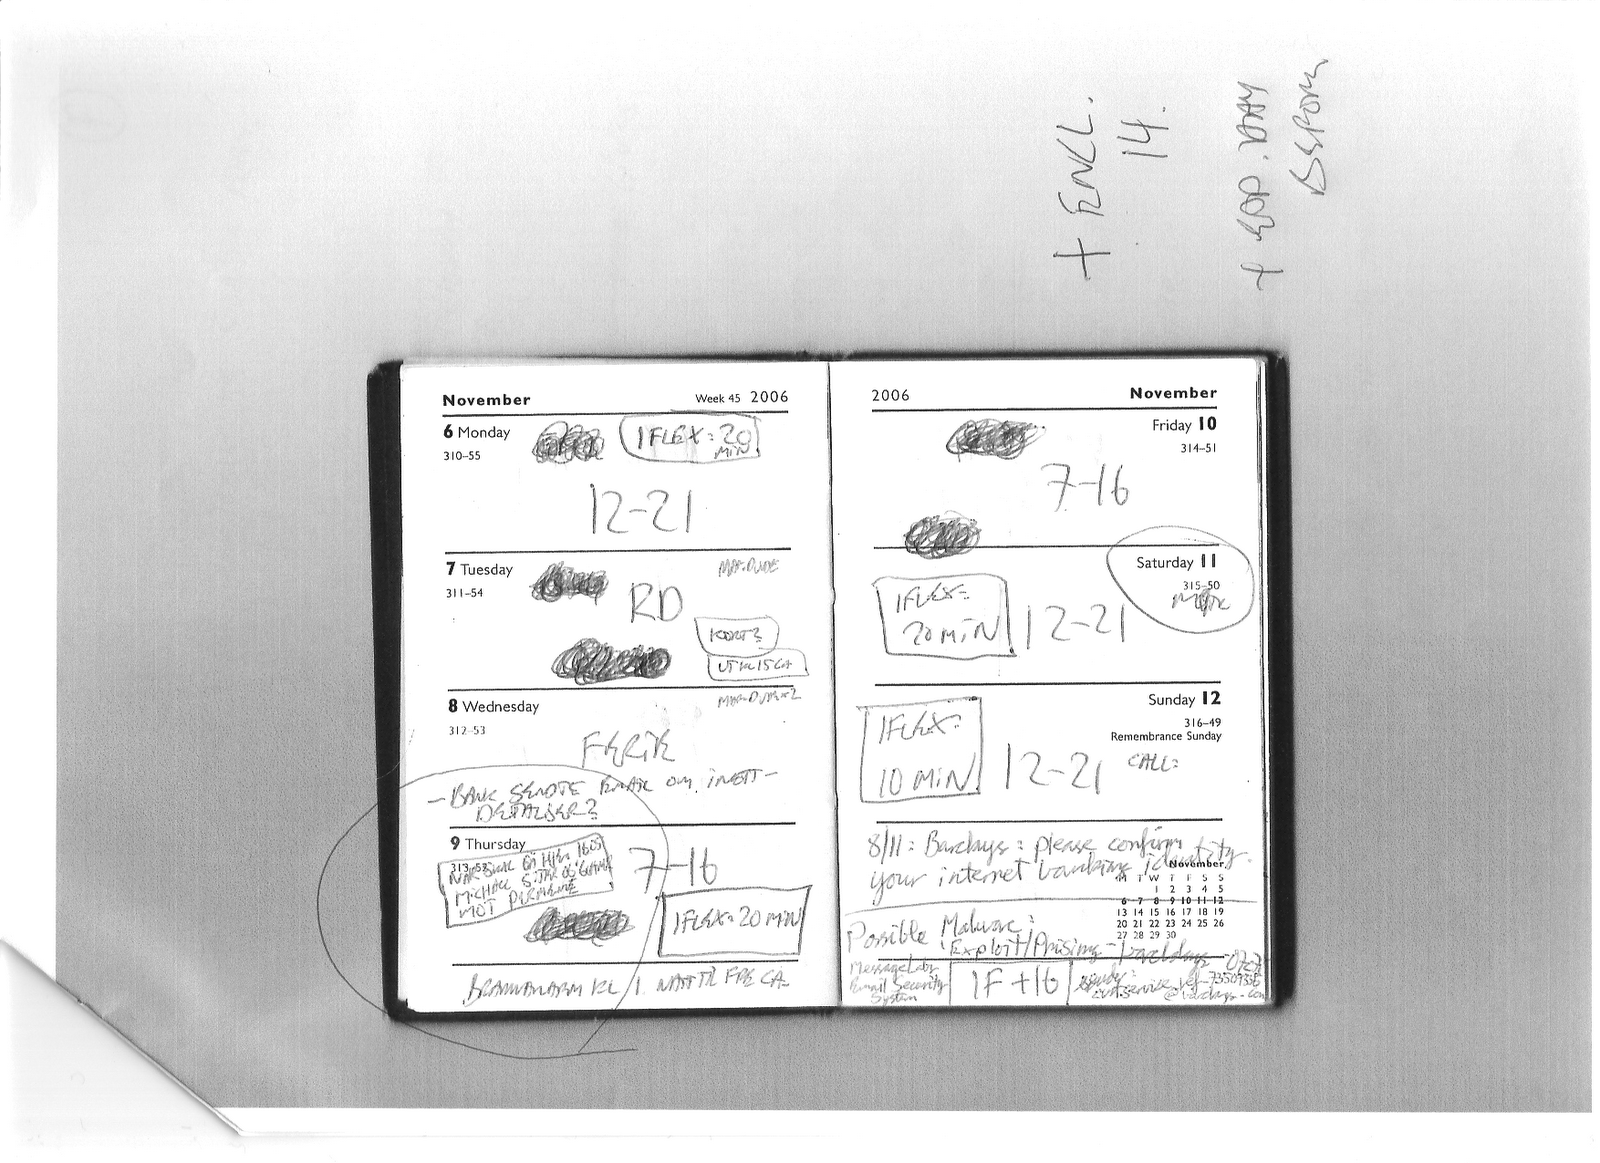 + ENCL.
14.
November
Week 45 2006
6 Monday
310–55
1 FLEX = 20
MIN
12-21
7 Tuesday
311–54
RD
KORT?
8 Wednesday
312–53
FERIE
- BANK SENDTE EMAIL OM. INETT-
DETALJER?
9 Thursday
313–52
MICHAEL
MOT
7-16
1 FLEX = 20 MIN
BRANNALARM KL 1. NATT TIL FRE CA.
2006
November
Friday 10
314–51
7-16
Saturday 11
315–50
1 FLEX =
20 MIN
12-21
Sunday 12
316–49
Remembrance Sunday
1 FLEX =
10 MIN
12-21
CALL:
8/11: Barclays: please confirm
your internet banking identity.
November
M T W T F S S
1 2 3 4 5
6 7 8 9 10 11 12
13 14 15 16 17 18 19
20 21 22 23 24 25 26
27 28 29 30
Possible Malware:
Exploit/Phising-
MessageLabs
Email Security
System
IF +16
@barclays.com